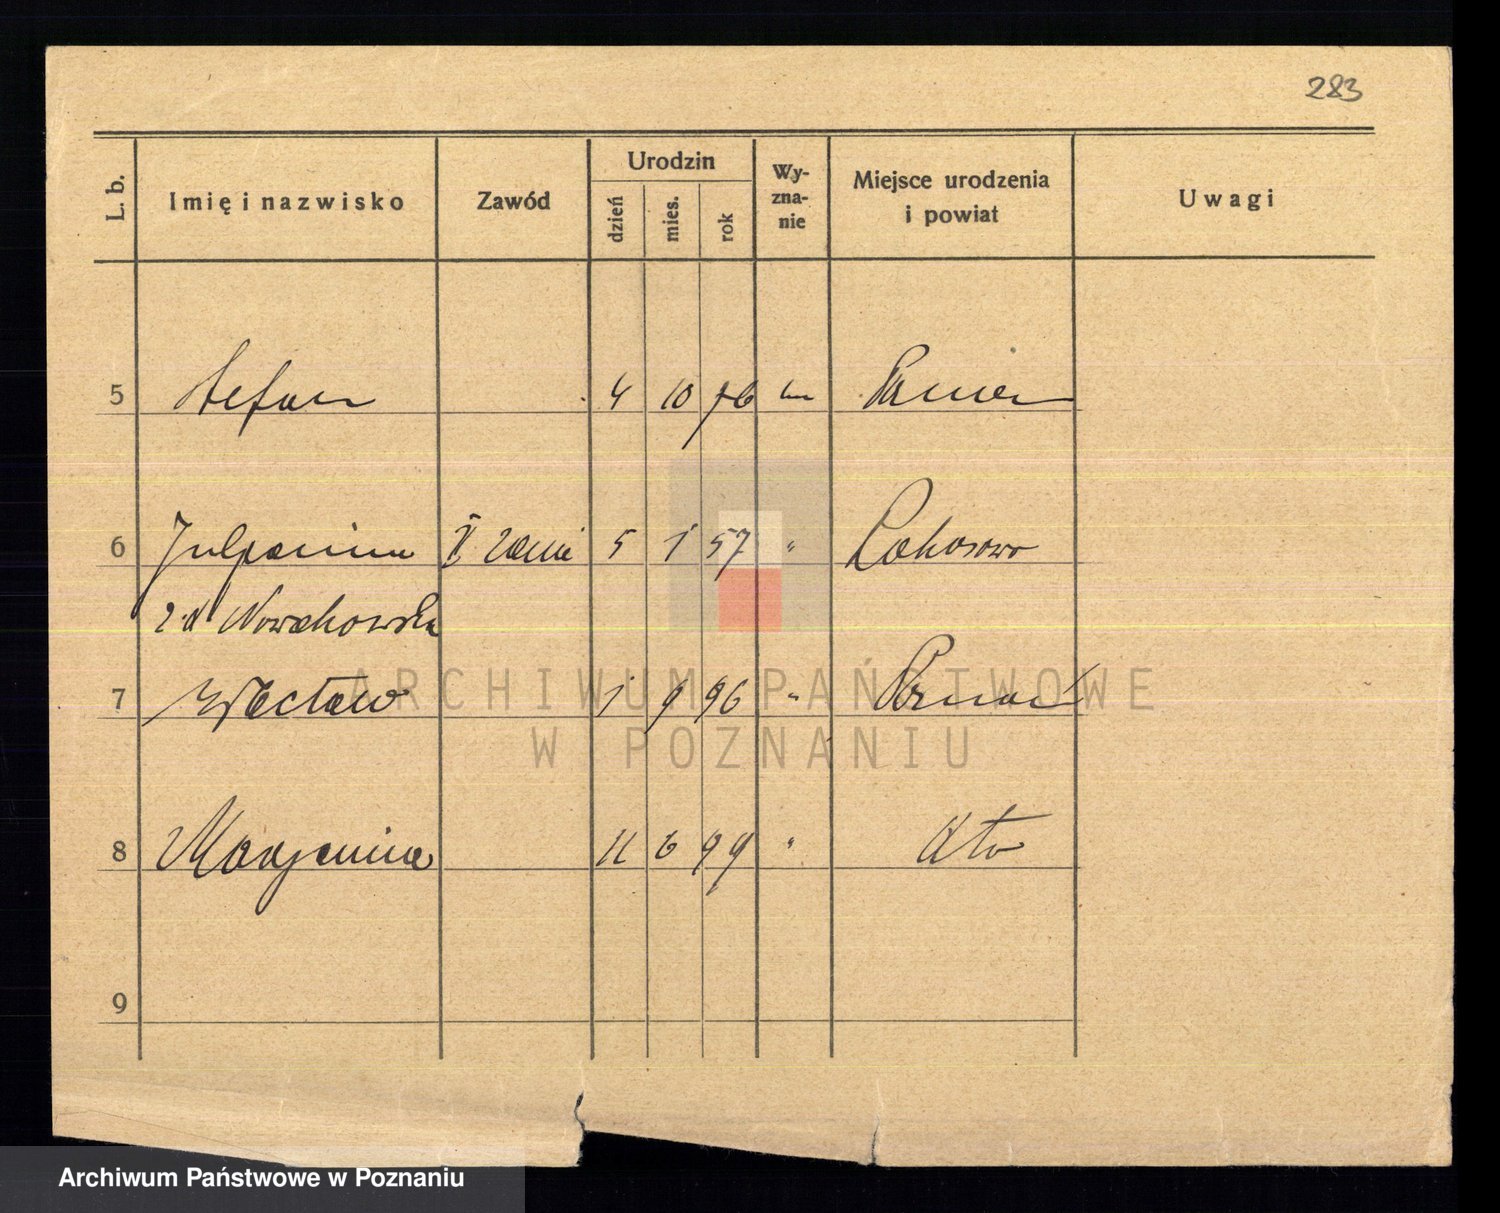 283
L. b. Imię i nazwisko Zawód Urodzin dzień mies. rok Wy-zna-nie Miejsce urodzenia i powiat Uwagi
5 Stefan 4 10 76
6 II 5 1 57 "
Nowakowska
7 Wacław 1 9 96 " Poznań
8 Marjanna 11 6 99 " dto
9
ARCHIWUM PAŃSTWOWE
W POZNANIU
Archiwum Państwowe w Poznaniu